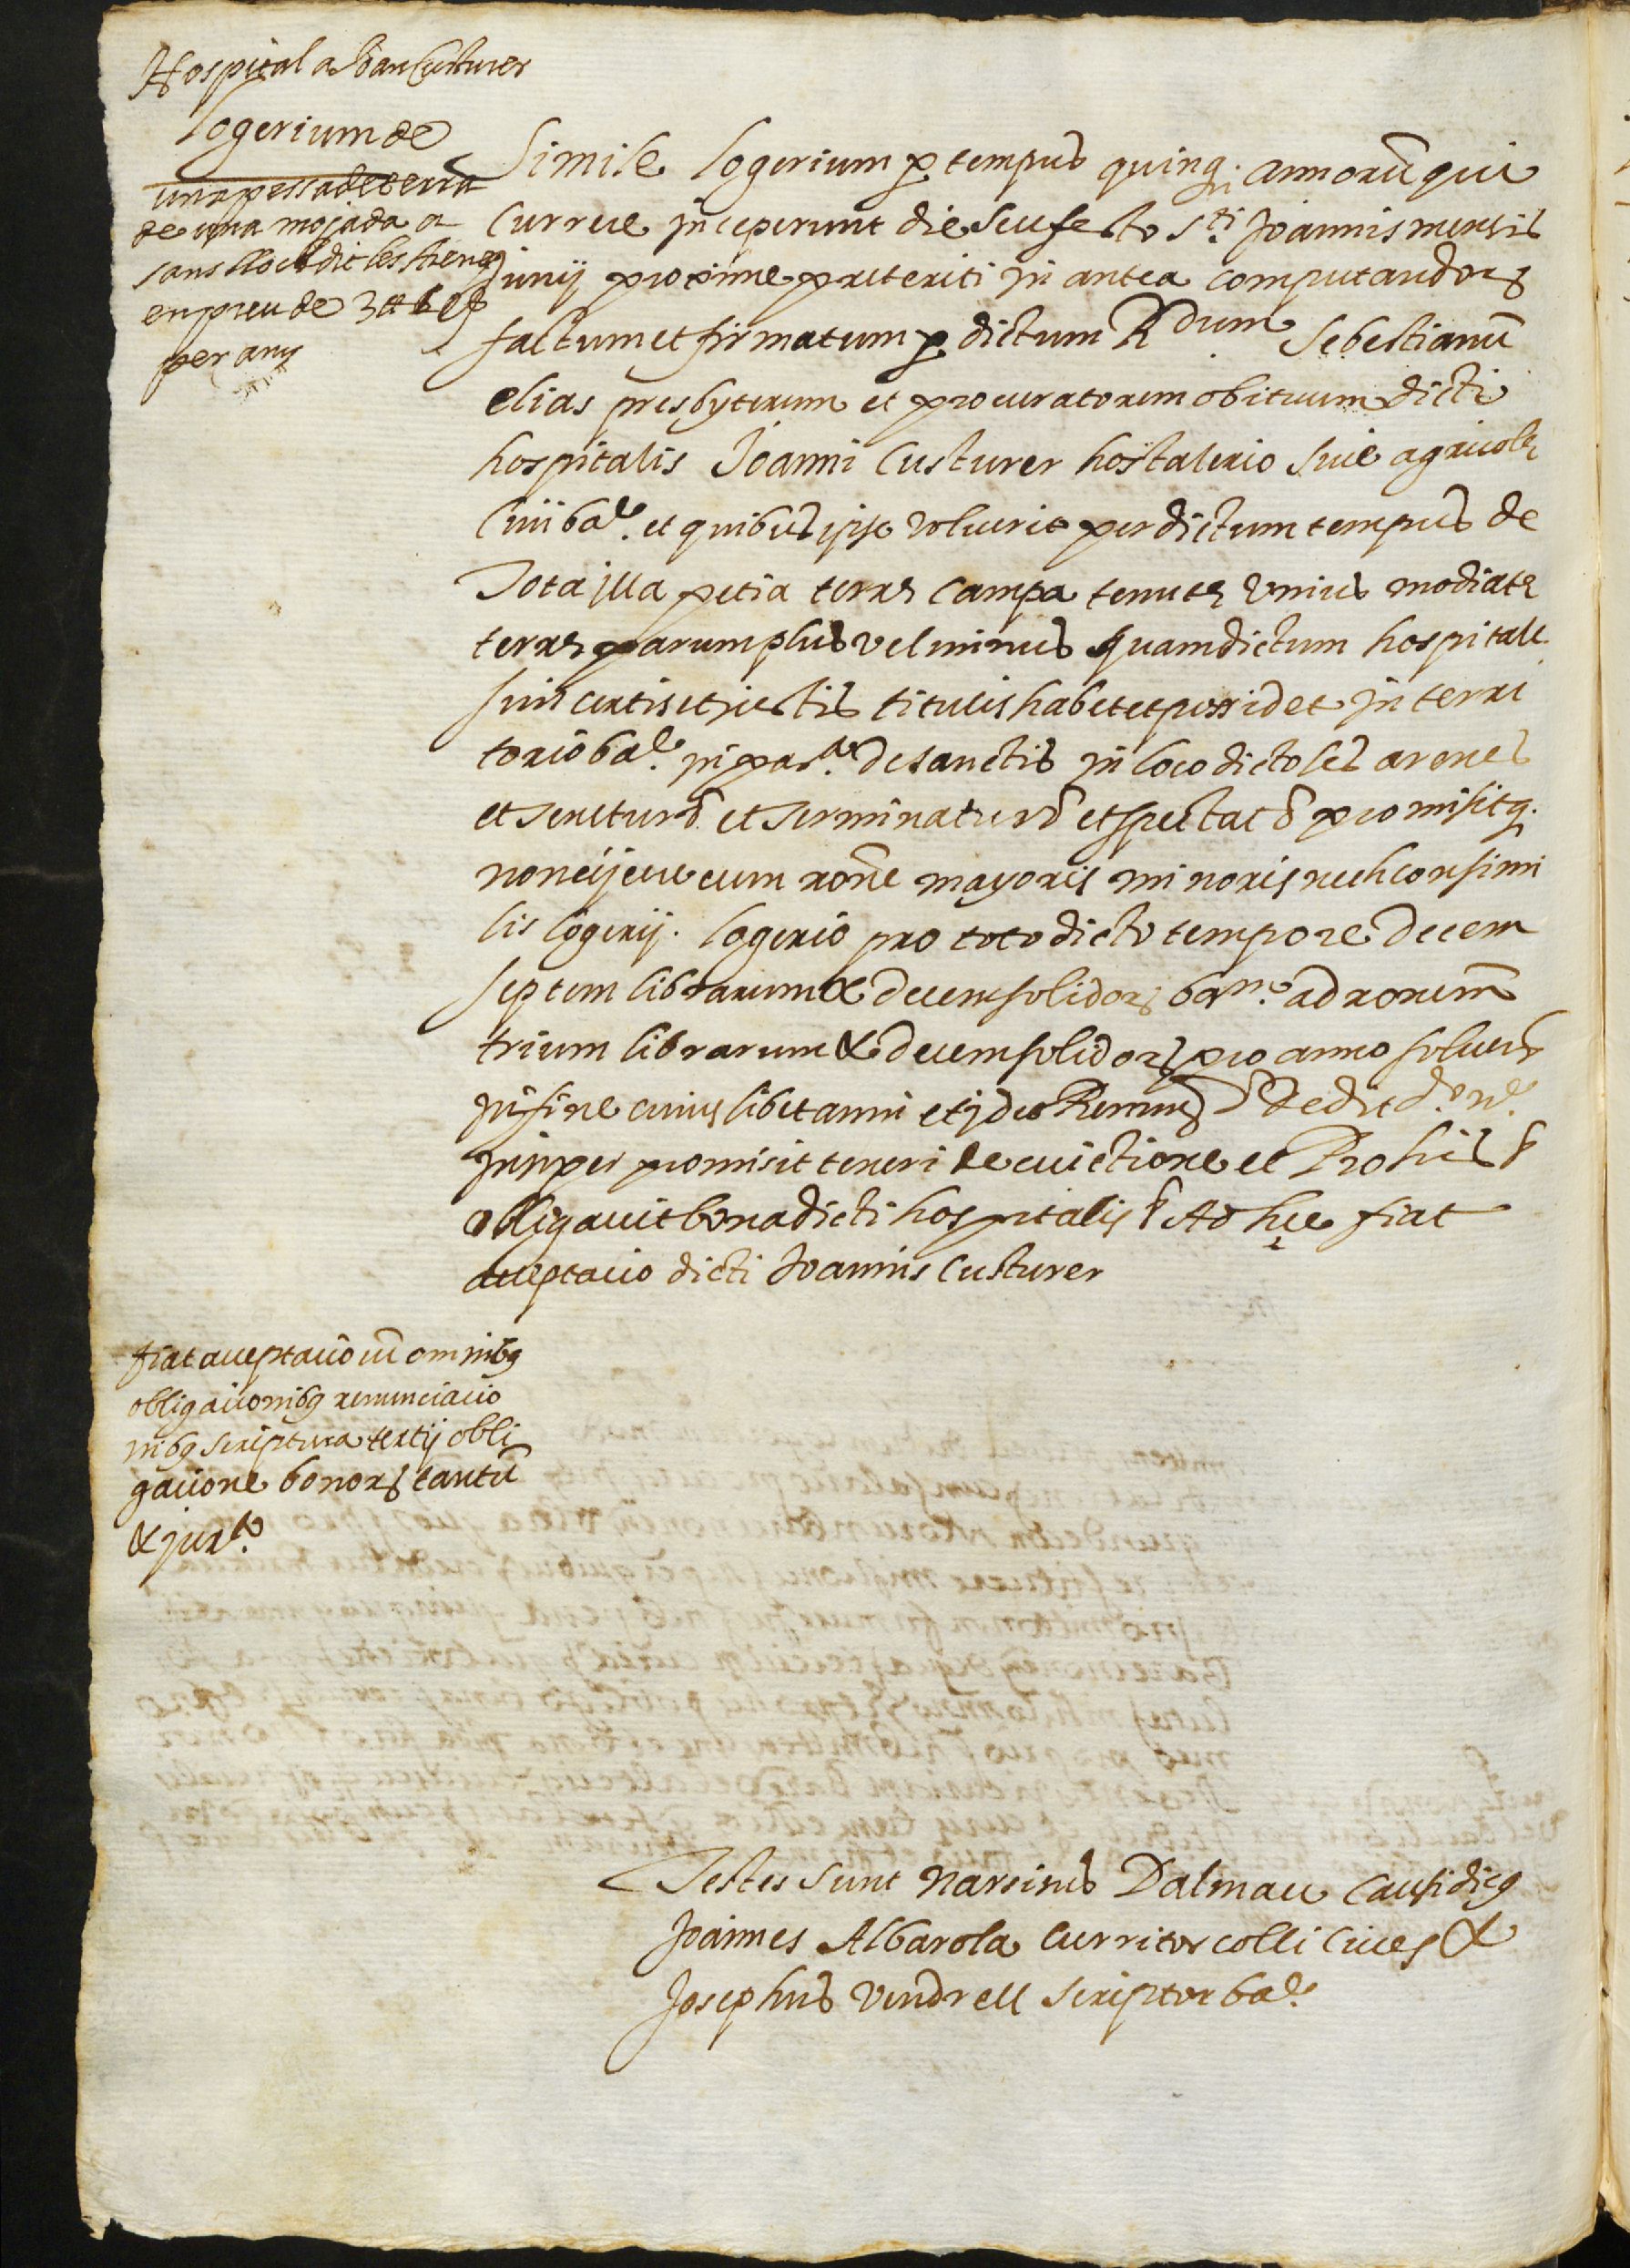 Hospital a Joan Custurer
logerium de
una pessa de terra
de una mojada a
sans lloch dit les Arenes
en preu de 3 ₶ 10 ß
per any
Simile logerium p tempus quinq. annorũ qui
Currere inceperunt die seu festo S.ti Joannis mensis
Junij proxime preteriti in antea computandoꝝ
factum et firmatum p dictum Rdum Sebestianũ
elias presbyterum et procuratorem obituum dicti
hospitalis Joanni Custurer hostalerio sive agricole
Civi bae. et quibus ipse voluerit per dictum tempus de
Tota illa petia terre campa tenute unius modiate
terre parum plus vel minus quam dictum hospitale
suis certis et justis titulis habet et possidet in terri
torio bae. in par.a de sanctis in loco dicto les arenes
et tenetur ꝺ et terminatur ꝺ et spectat ꝺ promisitq.
non eijcere cum rone mayoris minoris nech consimi
lis logerij. logerio pro toto dicto tempore decem
septem librarum & decem solidoꝝ bane. ad ronem
trium librarum & decem solidoꝝ pro anno solvend
in fine cuiuslibet anni et ideo Renund ꝺ dedit d.o n.e
insuper promisit teneri de evictione et Pro his ꝭ
obligavit bona dicti hospitalis ꝭ Ad hec fiat
acceptacio dicti Joannis Custurer
fiat acceptacio cũ omnibꝰ
obligacionibꝰ renunciacio
nibꝰ scriptura tertij obli
gacione bonoꝝ tantũ
& jur.to
Testes sunt Narcisus Dalmau Causidicꝰ
Joannes Albarola Curritor colli Cives &
Josephus Vendrell scriptor bae.